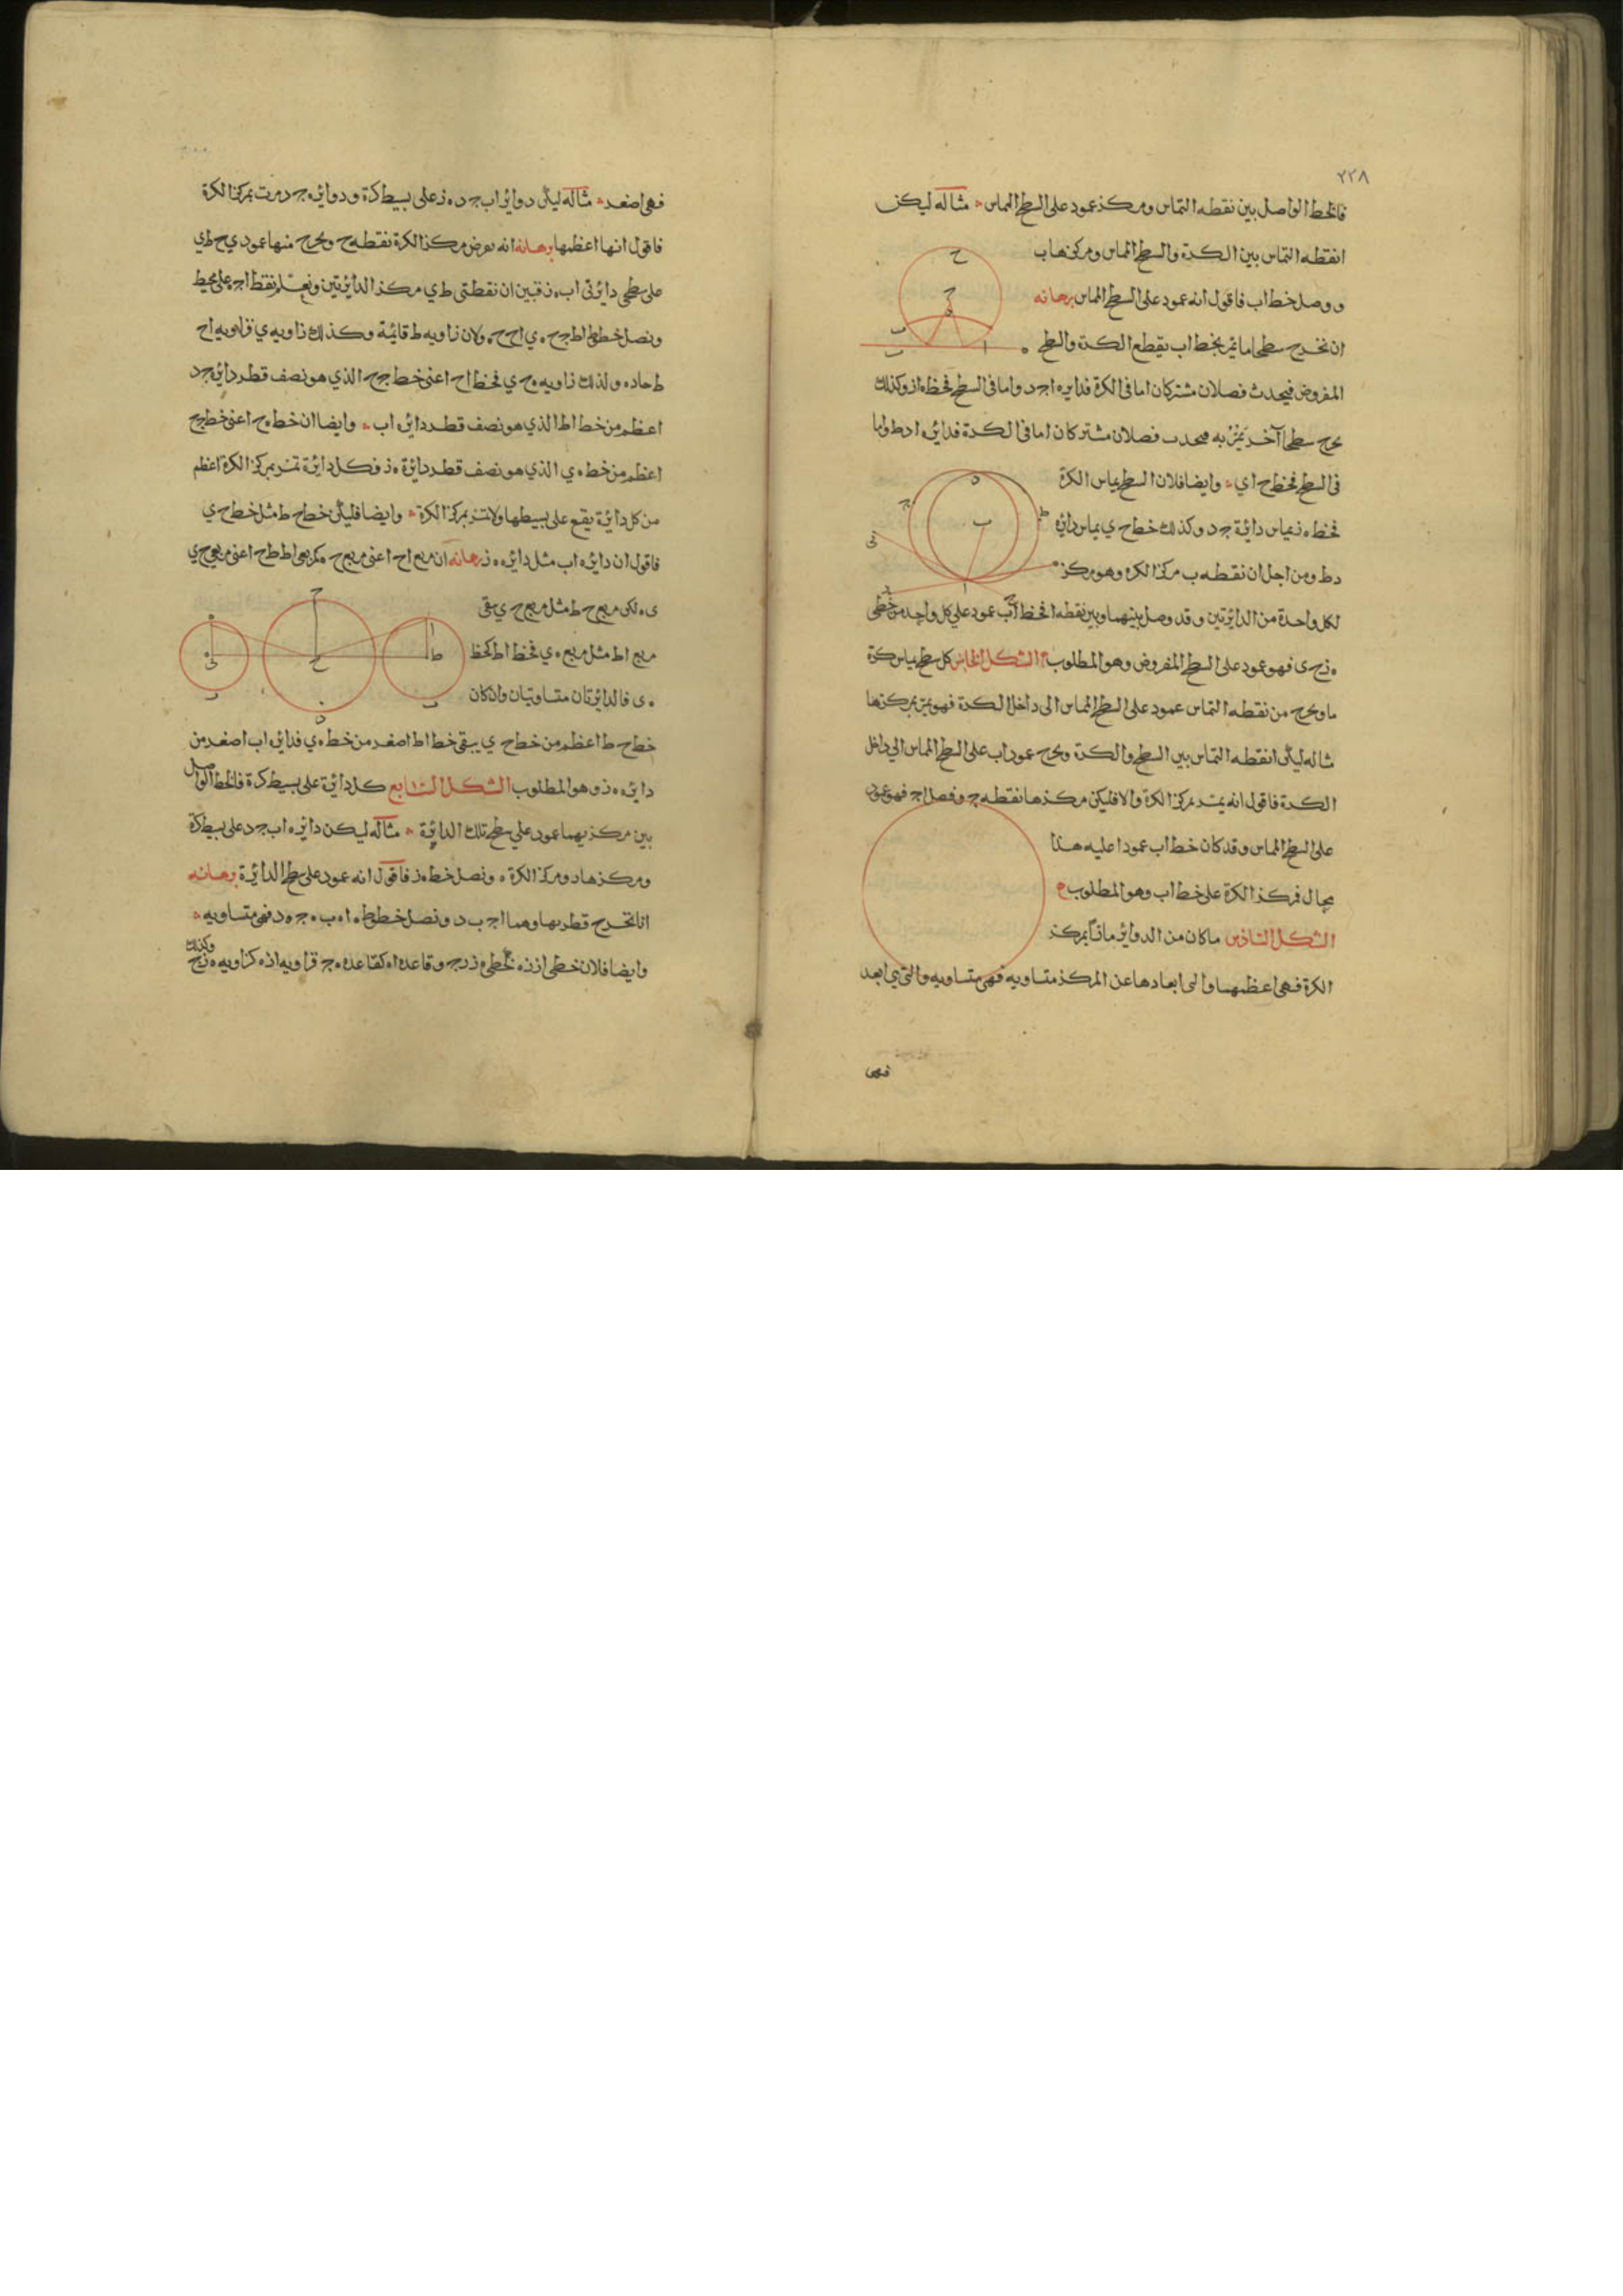 ٢٢٨
فالخط الواصل بين نقطه التماس ومركز عمود على السطح المماس مثاله ليكن
ا نقطه التماس بين الكرة والسطح المماس ومركزها ب
و وصل خط اب فاقول انه عمود على السطح المماس برهانه
ان نخرج سطحا ما يمر بخط اب يقطع الكرة والسطح
المفروض فيحدث فصلان مشتركان اما فى الكرة فدايره اجد واما فى السطح فخط ه از وكذلك
نخرج سطحا آخر يمر به فيحدث فصلان مشتركان اما فى الكرة فدائره ادط واما
فى السطح فخط ح اي وايضا فلان السطح يماس الكرة
فخط ه ز يماس دائرة جد وكذلك خط ح ي يماس دائرة
دط ومن اجل ان نقطه ب مركز الكره وهو مركز
لكل واحدة من الدائرتين وقد وصل بينهما وبين نقطه ا فخط اب عمود على كل واحد من خطى
ه ز ح ى فهو عمود على السطح المفروض وهو المطلوب الشكل الخامس كل سطح يماس كرة
ما ونخرج من نقطه التماس عمود على السطح المماس الى داخل الكرة فهو يمر بمركزها
مثاله ليكن ا نقطه التماس بين السطح والكرة ونخرج عمود اب على السطح المماس الى داخل
الكرة فاقول انه يمر بمركز الكرة والا فليكن مركزها نقطه ج ونصل اج فهو عمود
على السطح المماس وقد كان خط اب عمودا عليه هذا
محال فمركز الكرة على خط اب وهو المطلوب
الشكل السادس ما كان من الدوائر مارّاً بمركز
الكرة فهى اعظمها والتى ابعادها عن المركز متساويه فهى متساويه والتى هي ابعد
فهى
فهى اصغر مثاله ليكن دوائر اب جد ه ز على بسيط كرة ودوائره جد مرت بمركز الكرة
فاقول انها اعظمها برهانه انه نفرض مركز الكرة نقطه ح ونخرج منها عمودي ح ط ي
على سطحى دائرتى اب ه ز فتبين ان نقطتى ط ي مركز الدائرتين ونعلم نقط ا ج ه على محيط
ونصل خطوط اط جح ه ي اح ح ه ولان زاويه ط قائمة وكذلك زاويه ي فزاويه اح
ط حاده ولذلك زاويه ه ح ي فخط اح اعنى خط جح الذي هو نصف قطر دائره جد
اعظم من خط اط الذي هو نصف قطر دائره اب وايضا ان خط ه ح اعنى خط جح
اعظم من خط ه ي الذي هو نصف قطر دائرة ه ز فكل دائرة تمر بمركز الكرة اعظم
من كل دائرة يقع على بسيطها ولا تمر بمركز الكرة وايضا فليكن خط ح ط مثل خط ح ي
فاقول ان دائره اب مثل دائره ه ز برهانه ان مربع اح اعنى مربع ح ه كمربعى اط ط ح اعنى مربعى ح ي
ى ه لكن مربع ح ط مثل مربع ح ي يبقى
مربع اط مثل مربع ه ي فخط اط كخط
ه ى فالدائرتان متساويتان وان كان
خط ح ط اعظم من خط ح ي يبقى خط اط اصغر من خط ه ي فدائره اب اصغر من
دائره ه ز وهو المطلوب الشكل السابع كل دائرة على بسيط كرة فالخط الواصل
بين مركزيهما عمود على سطح تلك الدائرة مثاله ليكن دائره اب جد على بسيط كرة
ومركزها د ومركز الكرة ه ونصل خط ه ز فاقول انه عمود على سطح الدائرة برهانه
انا نخرج قطريها وهما اج ب د ونصل خطوط ه ا ه ب ه ج ه د فهى متساويه
وايضا فلان خطى از زه كخطى ه ز زج وقاعده اه كقاعده ه ج فزاويه ازه كزاويه ه زج وكذلك